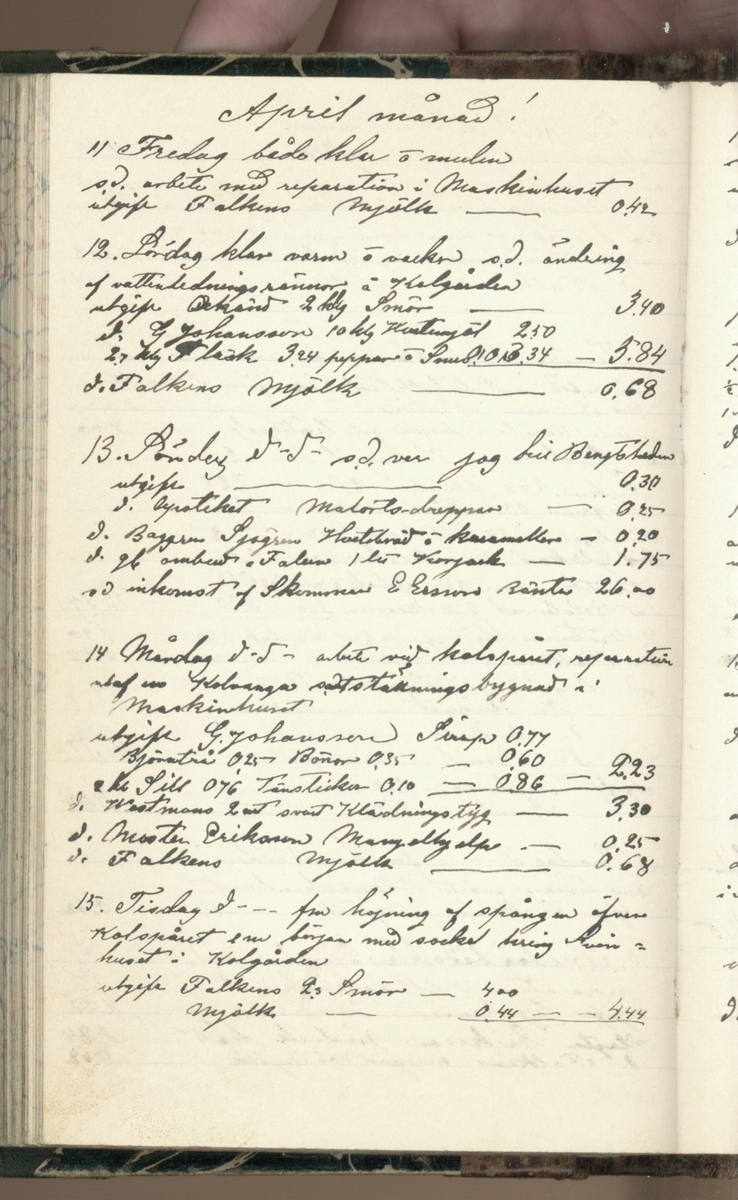 April månad!
11 Fredag både klar o mulen
s.d. arbete med reparation i Maskinhuset
utgift Falkens Mjölk — 0.42
12. Lördag klar varm o vacker s.d. ändring
af vattenledningsrännor å Kolgården
utgift 2 klg Smör — 3.40
d. G Johansson 10 klg Hvetemjöl 2.50
2,7 klg Fläsk 3.24 peppar o 0.10 3.34 — 5.84
d. Falkens Mjölk — 0.68
13. Söndag d-d- s.d. var jag till Bengtsheden
utgift — 0.30
d. Apotiket Matarts-droppar — 0.25
d. Baggren Sjögren Hvetebröd o karameller — 0.20
d. gb ombud i Falun 1 lit Konjack — 1.75
s.d inkomst af Skommar E Ersson ränta 26.00
14 Måndag d-d- arbete vid kolspåret, reparation
af en Kolvagn samt stäkningsbygnad i
Maskinhuset
utgift G. Johansson Sirap 0,77
Björntrå 0,25 Bönor 0.35 — 0,60
Sill 0.76 Tänstickor 0.10 — 0.86 — 2.23
d. Westmans 2 svart Klädningstyg — 3.30
d. Moster Erikson Mangelhjelp — 0.25
d. Falkens Mjölk — 0.68
15. Tisdag d--- fm höjning af spången öfver
Kolspåret em början med sockel kring
huset i Kolgården
utgift Falkens 2,3 Smör — 4.00
Mjölk — 0.44 — 4.44